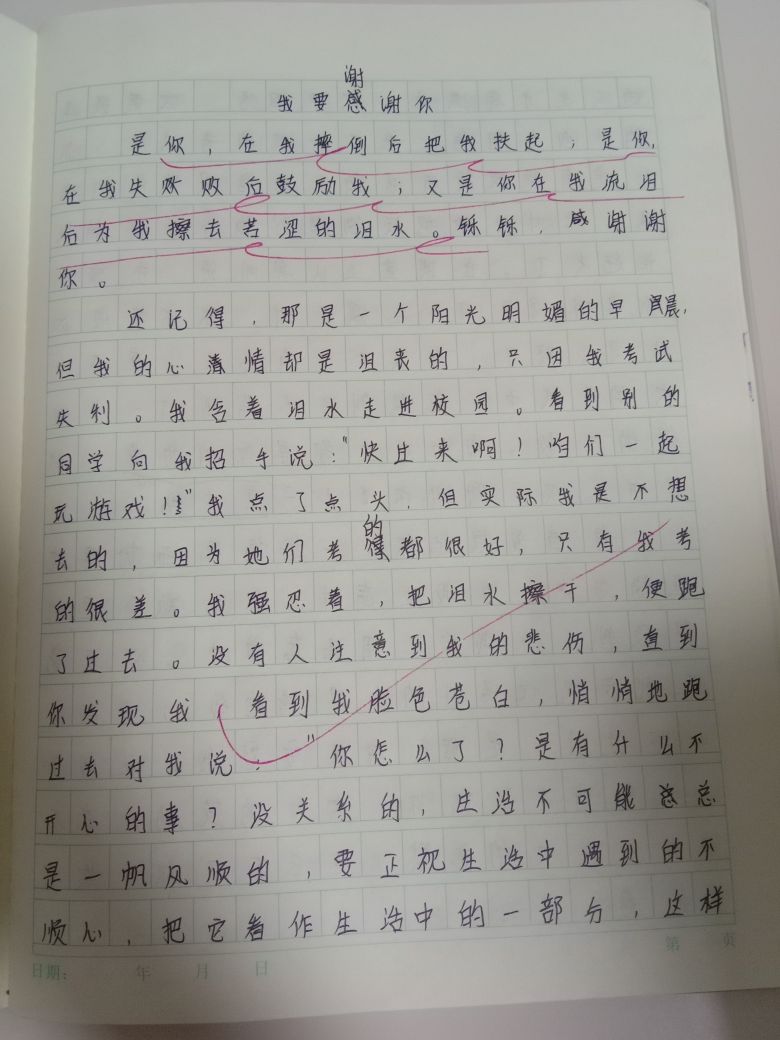 谢
我要感谢你
是你，在我摔倒后把我扶起；是你，
在我失败败后鼓励我；又是你在我流泪
后为我擦去苦涩的泪水。铄铄，感谢谢
你。
还记得，那是一个阳光明媚的早晨，
但我的心情却是沮丧的，只因我考试
失利。我含着泪水走进校园。看到别的
同学向我招手说："快过来啊！咱们一起
玩游戏！"我点了点头，但实际我是不想
的
去的，因为她们考都很好，只有我考
的很差。我强忍着，把泪水擦干，便跑
了过去。没有人注意到我的悲伤，直到
你发现我，看到我脸色苍白，悄悄地跑
过去对我说："你怎么了？是有什么不
开心的事？没关系的，生活不可能总总
是一帆风顺的，要正视生活中遇到的不
顺心，把它看作生活中的一部分，这样
日期： 年 月 日
第 页